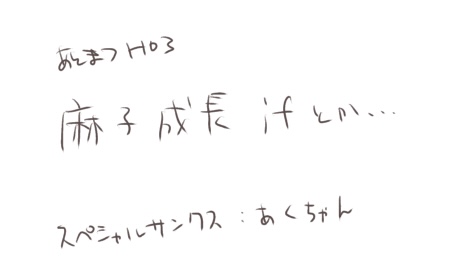 あとまつHO3
麻子成長ifとか…
スペシャルサンクス：あくちゃん